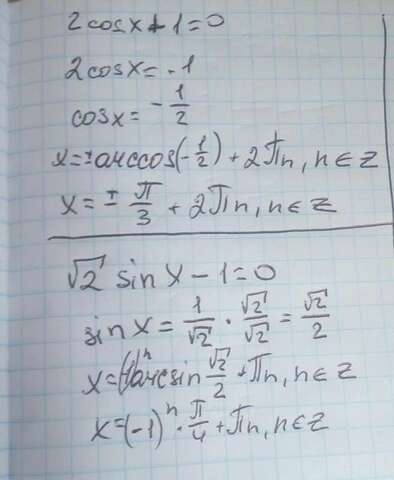 2cosx+1=0
2cosx=-1
cosx=-\frac{1}{2}
x=±arccos(-\frac{1}{2})+2πn, n∈Z
x=±\frac{π}{3}+2πn, n∈Z
√2 sinx-1=0
sinx=\frac{1}{√2}·\frac{√2}{√2}=\frac{√2}{2}
x=(-1)^n arcsin\frac{√2}{2}+πn, n∈Z
x=(-1)^n·\frac{π}{4}+πn, n∈Z